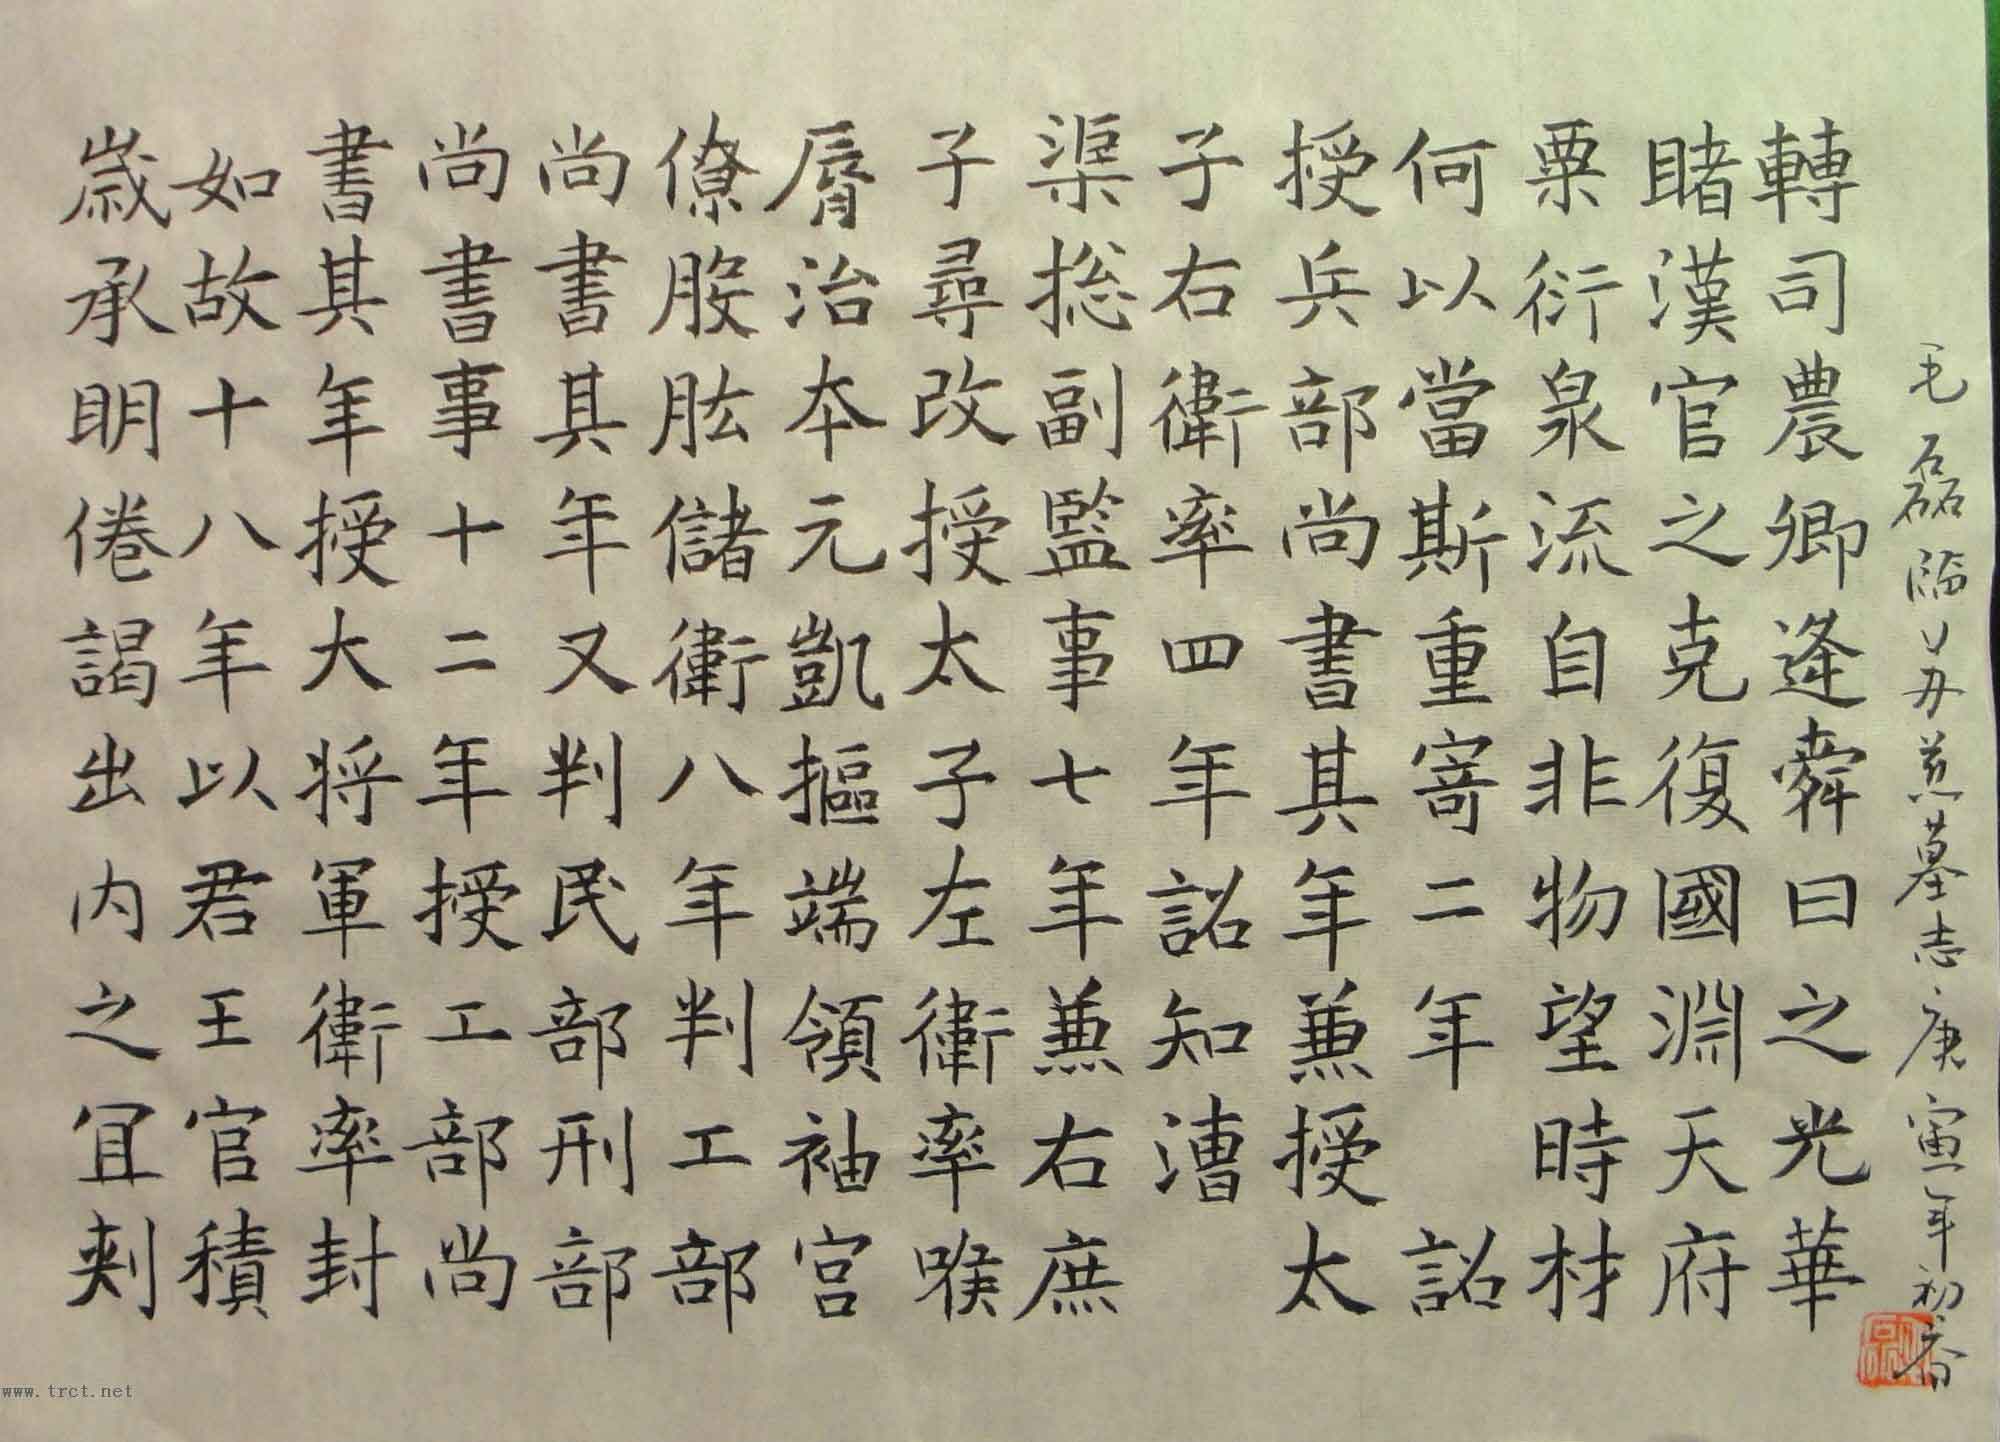 轉司農卿逄舜曰之光華
睹漢官之克復國淵天府
粟衍泉流自非物望時材
何以當斯重寄二年 詔
授兵部尚書其年兼授太
子右衛率四年詔知漕
渠総副監事七年兼右庶
子尋改授太子左衛率喉
脣治本元凱摳端領袖宫
僚股肱儲衛八年判工部
尚書其年又判民部刑部
尚書事十二年授工部尚
書其年授大將軍衛率封
如故十八年以君王官積
歳承明倦謁出内之冝刺
毛磊臨蘇慈墓志庚寅年初春
www.trct.net